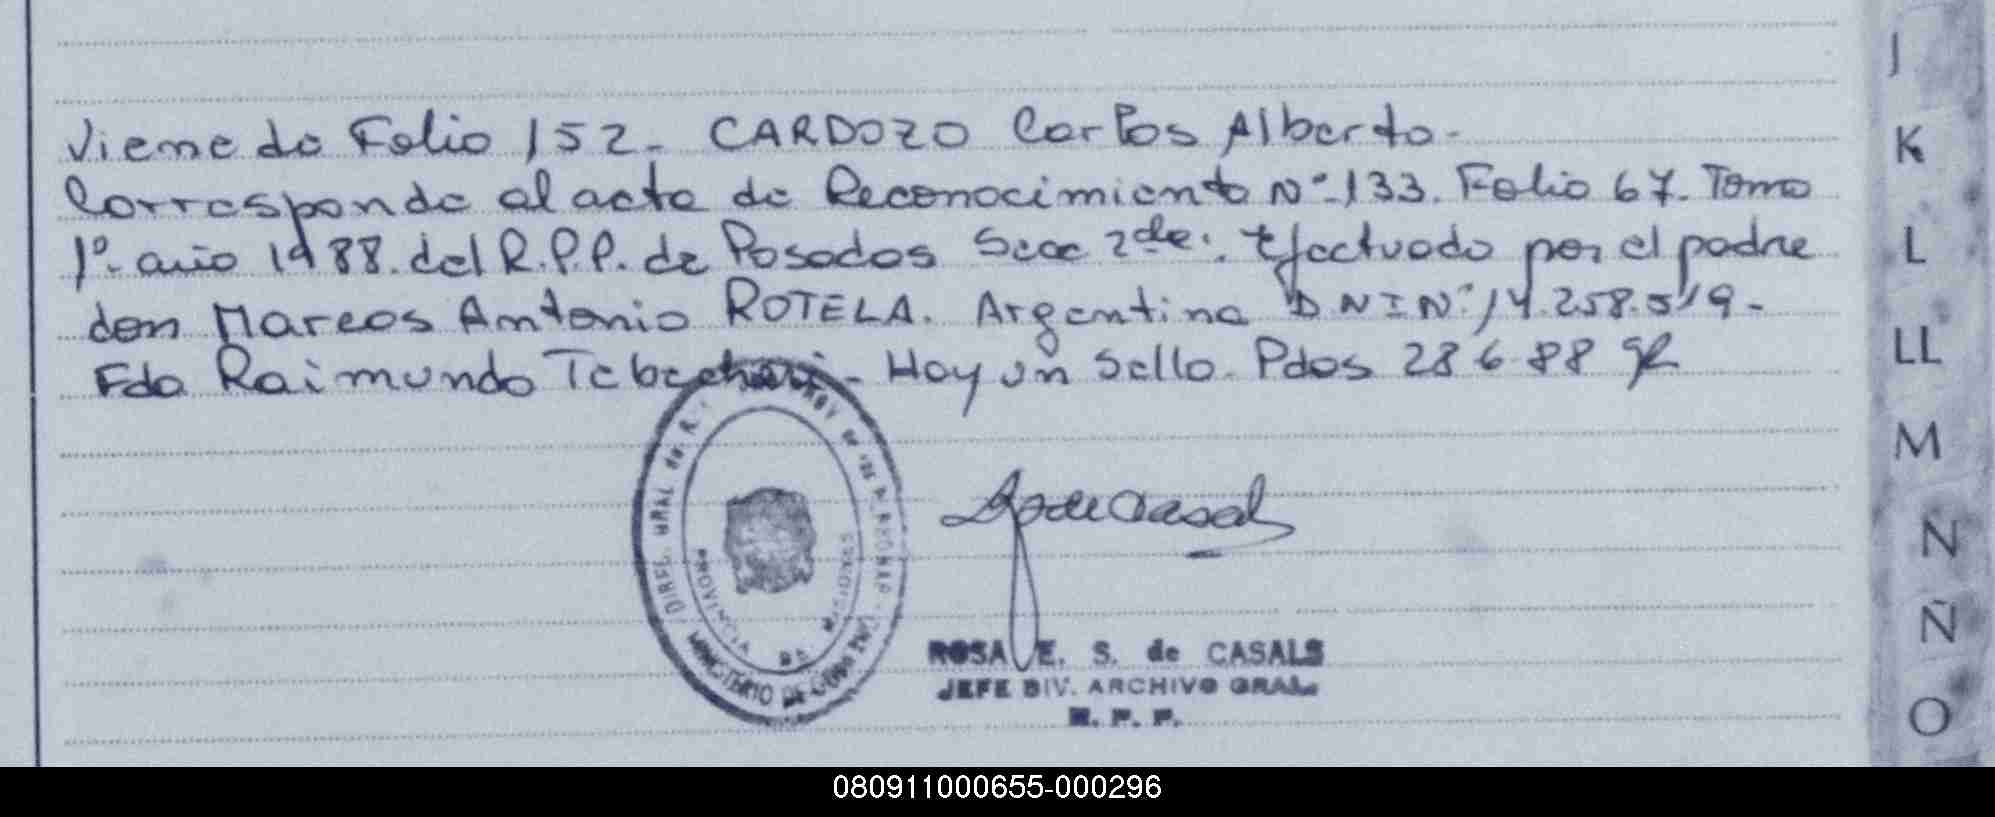 Viene de Folio 152 - CARDOZO Carlos Alberto -
Corresponde al acta de Reconocimiento Nº 133. Folio 67. Tomo
1º. año 1988. del R.P.P. de Posadas Secc 2da. Efectuado por el padre
don Marcos Antonio ROTELA. Argentina D.N.I Nº 14.258.519 -
Fdo Raimundo - Hay un Sello. Pdas 28 6 88
DIREC. GRAL del R.
PROVINCIA DE MISIONES
MINISTERIO DE GOBIERNO
ROSA E. S. de CASALS
JEFE DIV. ARCHIVO GRAL.
R. P. P.
J
K
L
LL
M
N
Ñ
O
080911000655-000296